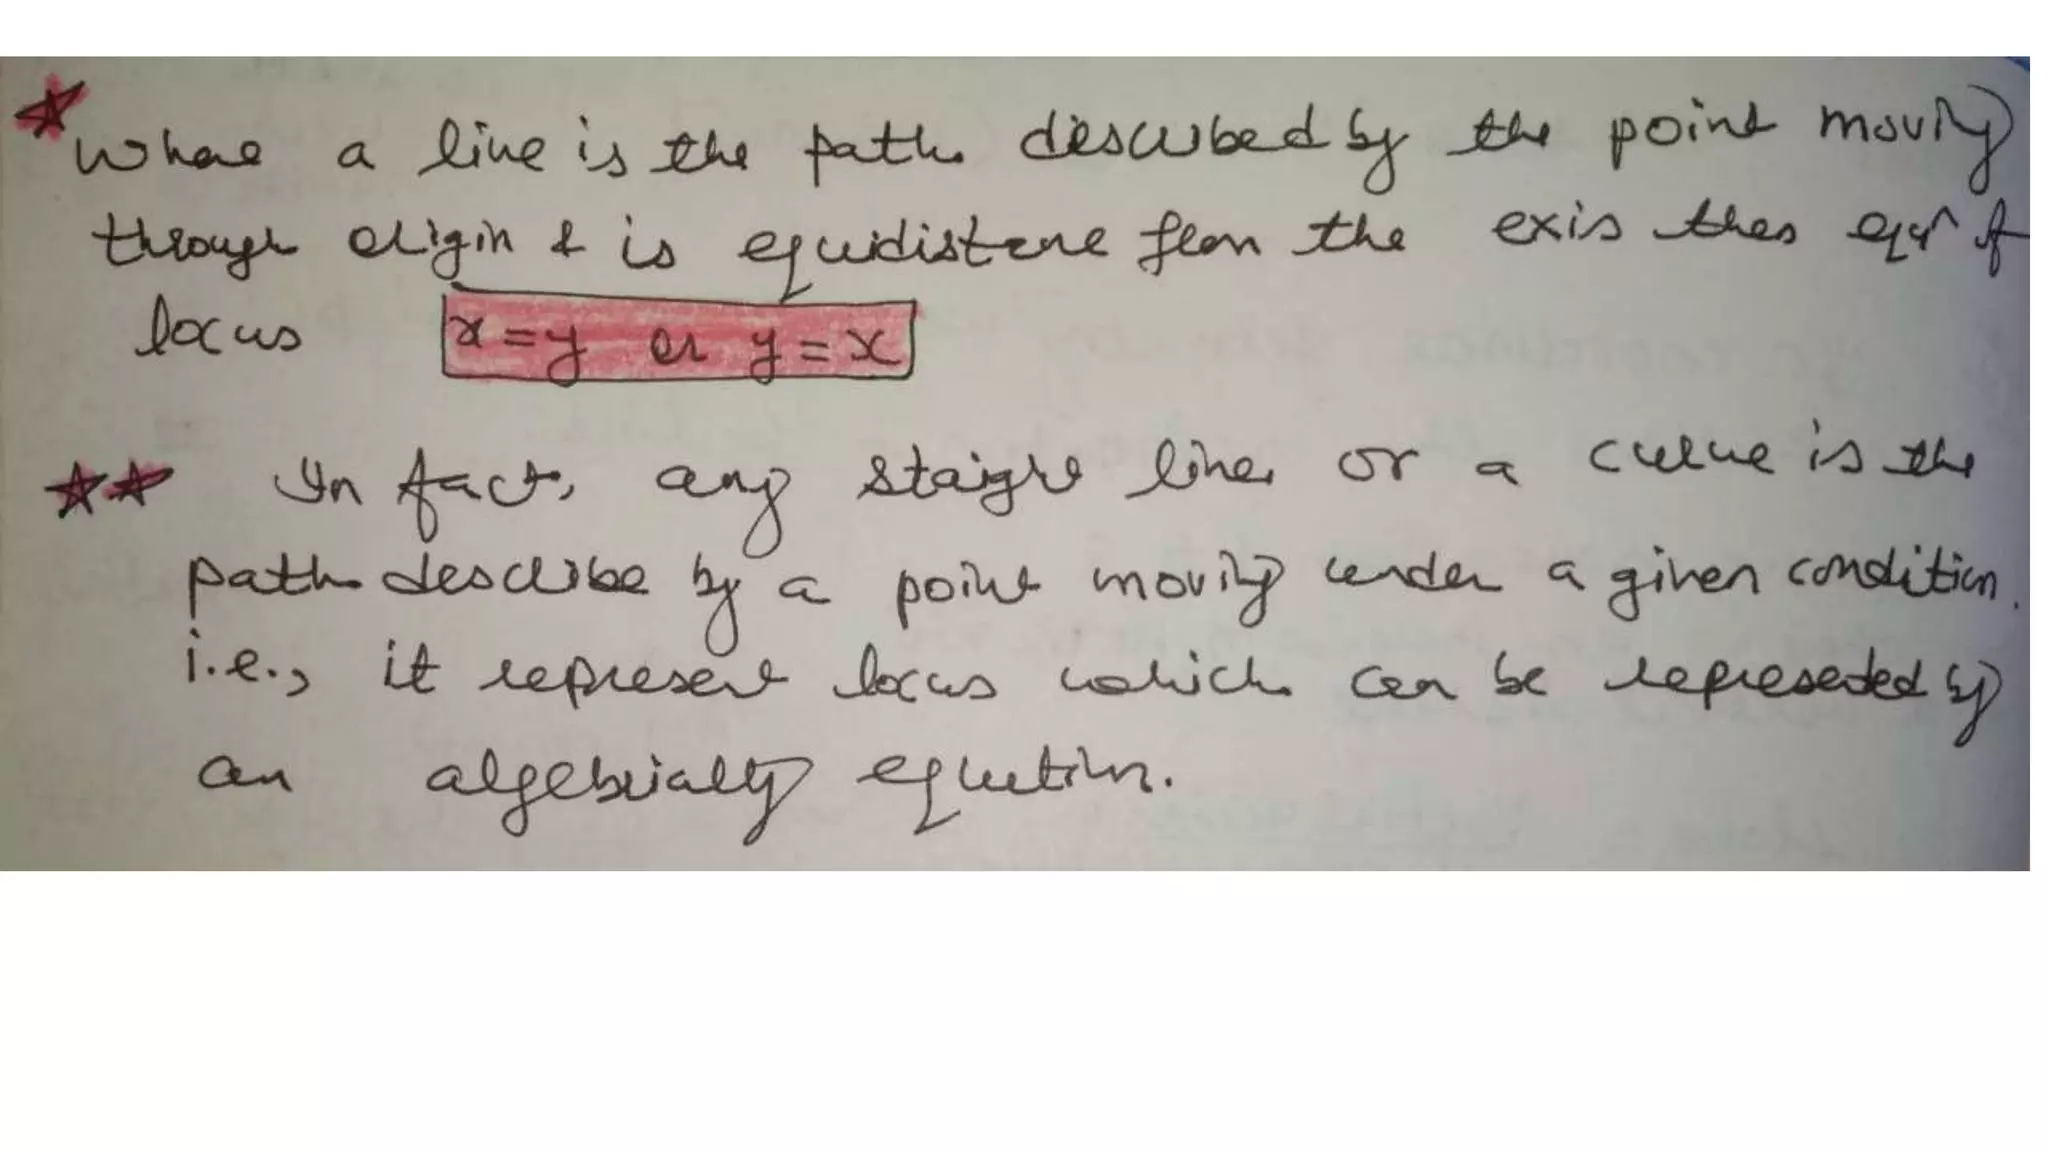 Where a line is the path described by the point moving
through origin & is equidistance from the exis then eqn of
locus x = y or y = x
In fact, any staight line or a curve is the
path describe by a point moving under a given condition.
i.e., it represent locus which can be represented by
an algebrially equation.